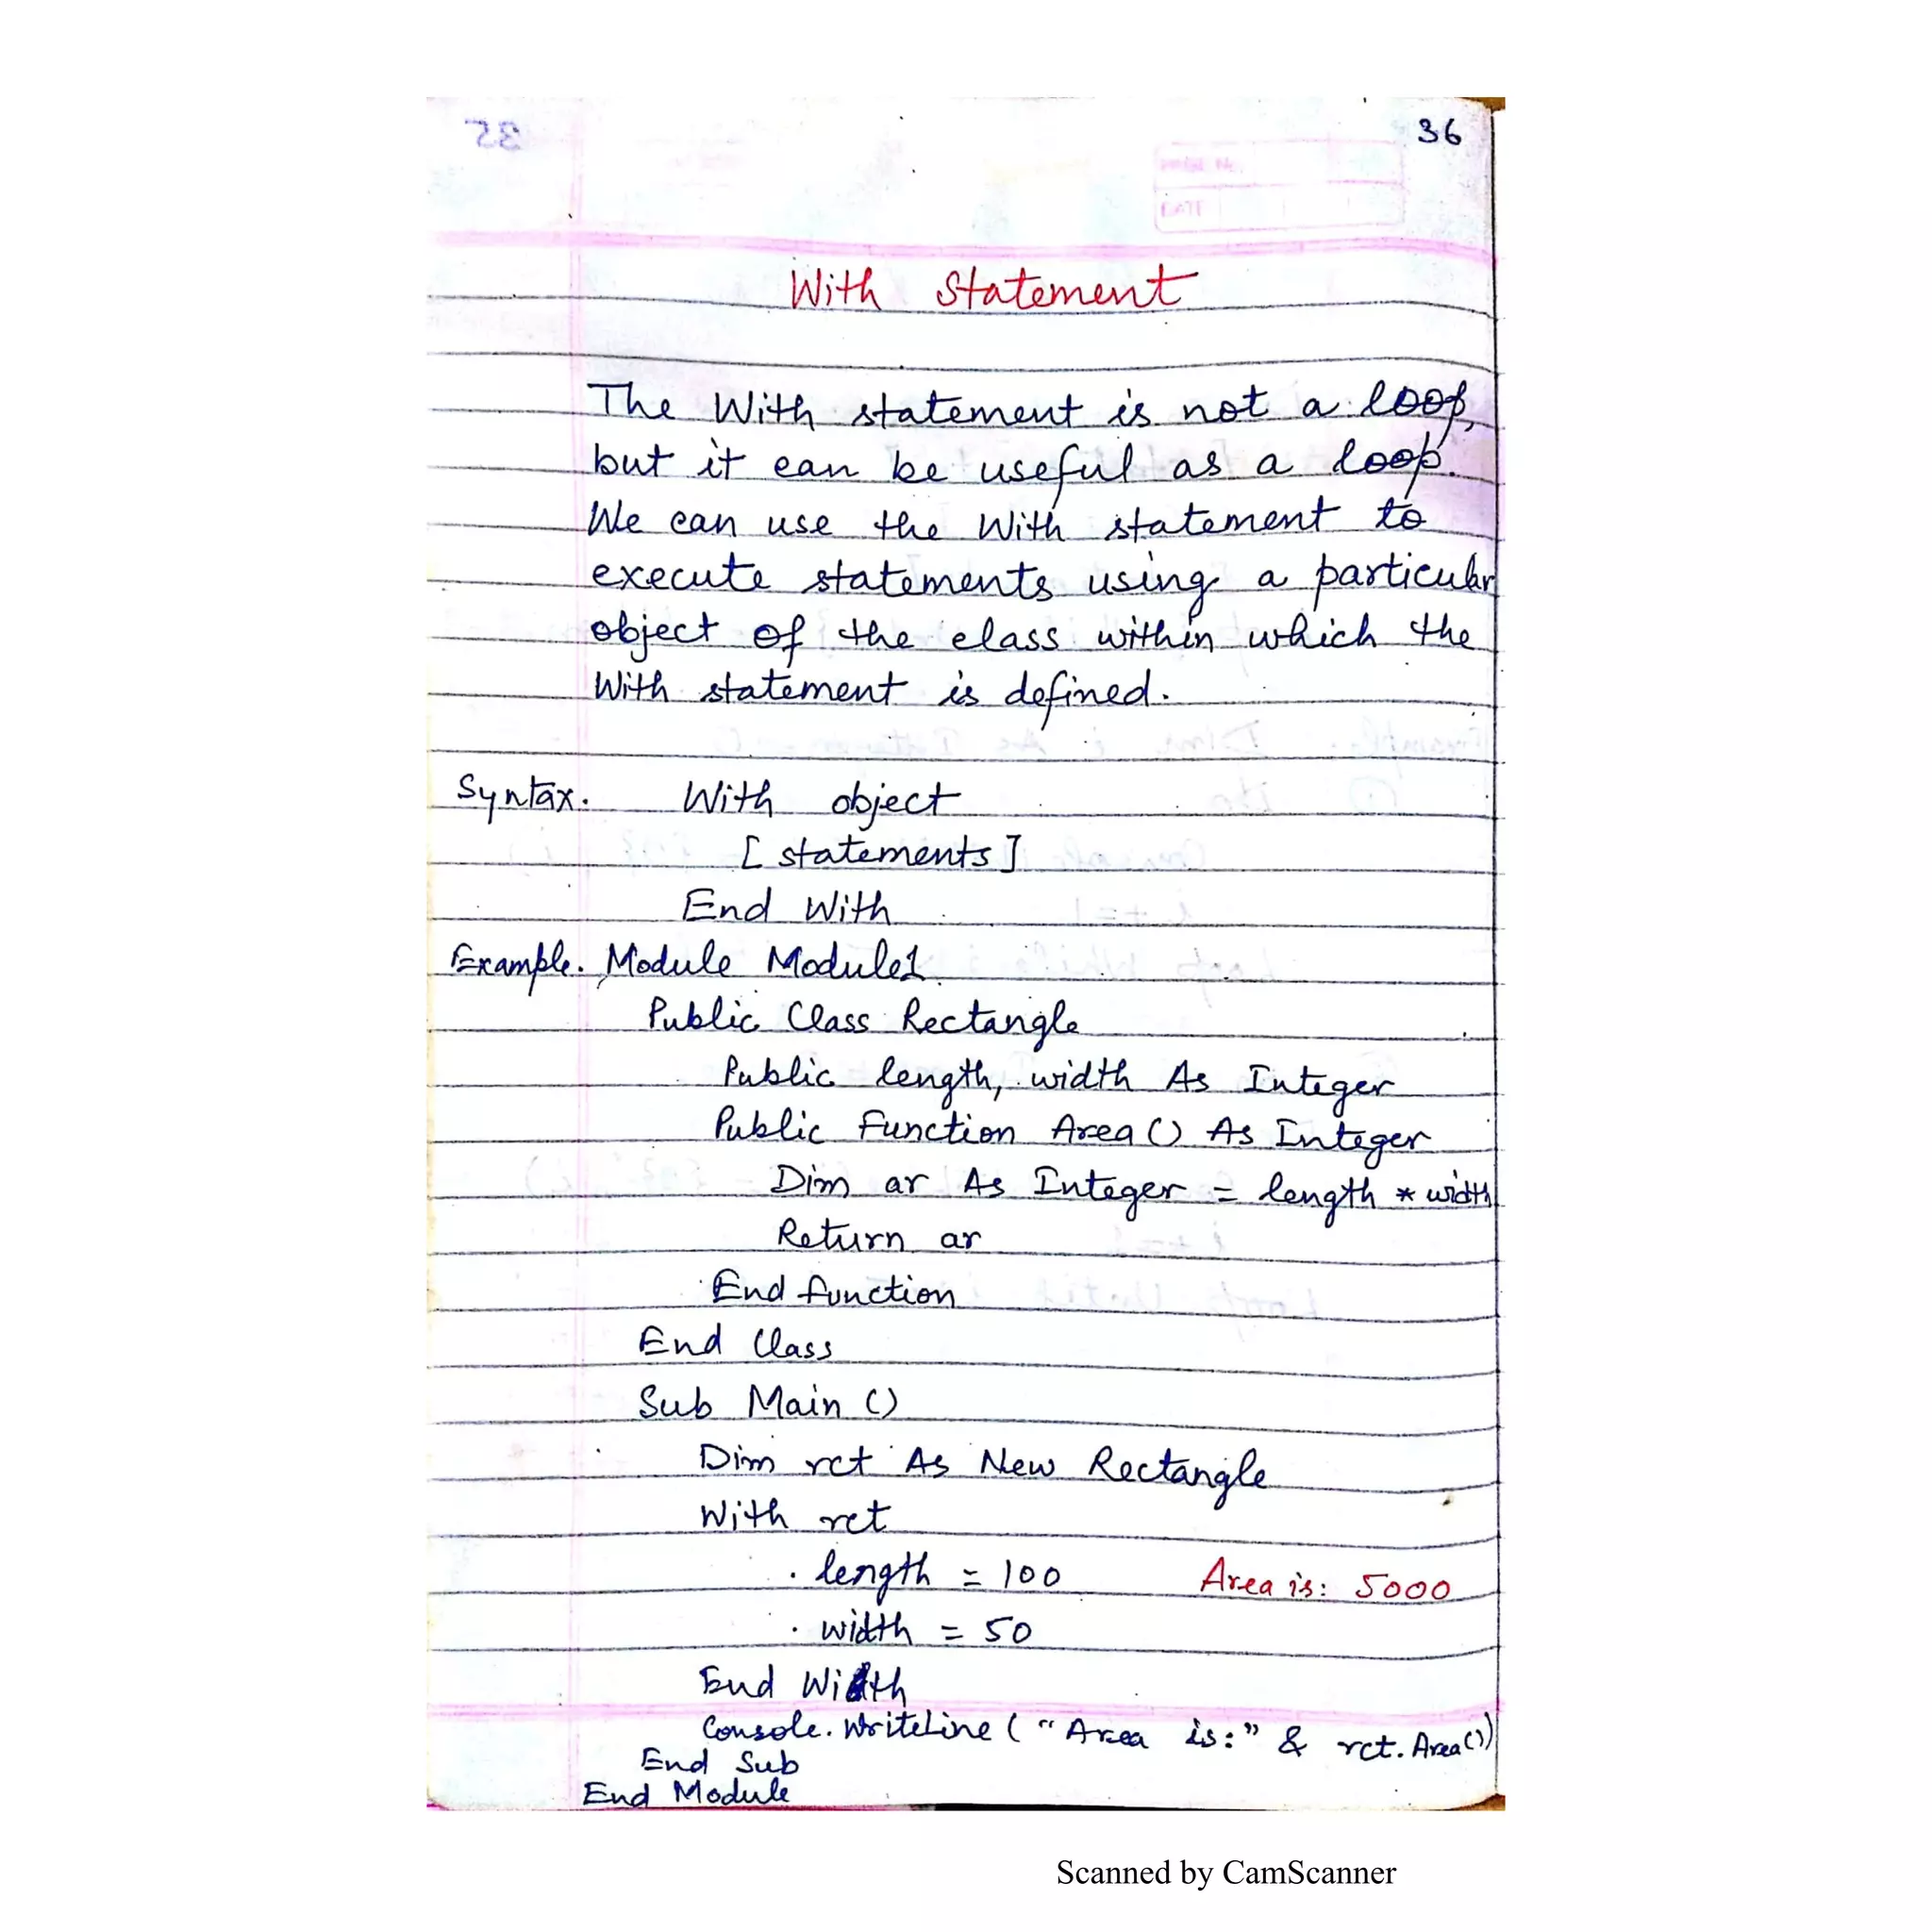 36
With Statement
The With statement is not a loop,
but it can be useful as a loop.
We can use the With statement to
execute statements using a particular
object of the class within which the
With statement is defined.
Syntax. With object
[ statements ]
End With
Example. Module Module1
Public Class Rectangle
Public length, width As Integer
Public Function Area () As Integer
Dim ar As Integer = length * width
Return ar
End function
End Class
Sub Main ()
Dim rct As New Rectangle
With rct
. length = 100 Area is: 5000
. width = 50
End With
Console.WriteLine ( "Area is:" & rct. Area())
End Sub
End Module
Scanned by CamScanner